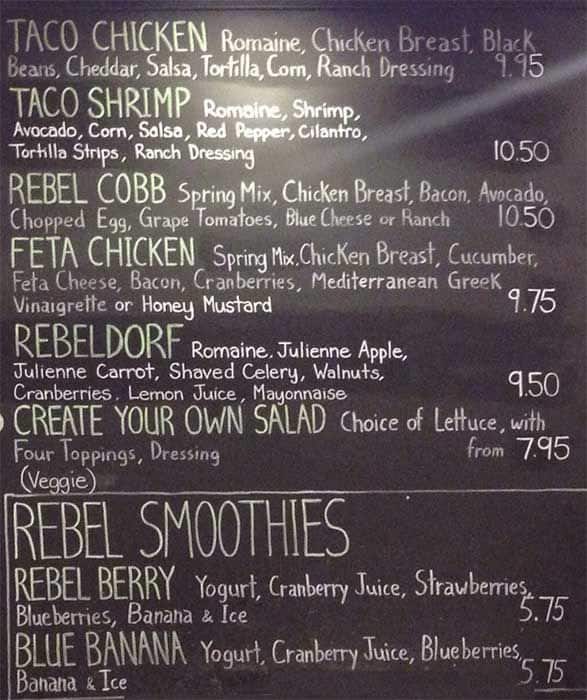 TACO CHICKEN Romaine, Chicken Breast, Black
Beans, Cheddar, Salsa, Tortilla, Corn, Ranch Dressing 9.95
TACO SHRIMP Romaine, Shrimp,
Avocado, Corn, Salsa, Red Pepper, Cilantro,
Tortilla Strips, Ranch Dressing 10.50
REBEL COBB Spring Mix, Chicken Breast, Bacon, Avocado,
Chopped Egg, Grape Tomatoes, Blue Cheese or Ranch 10.50
FETA CHICKEN Spring Mix, Chicken Breast, Cucumber,
Feta Cheese, Bacon, Cranberries, Mediterranean Greek
Vinaigrette or Honey Mustard 9.75
REBELDORF Romaine, Julienne Apple,
Julienne Carrot, Shaved Celery, Walnuts,
Cranberries, Lemon Juice, Mayonnaise 9.50
CREATE YOUR OWN SALAD Choice of Lettuce, with
Four Toppings, Dressing from 7.95
(Veggie)
REBEL SMOOTHIES
REBEL BERRY Yogurt, Cranberry Juice, Strawberries,
Blueberries, Banana & Ice 5.75
BLUE BANANA Yogurt, Cranberry Juice, Blueberries,
Banana & Ice 5.75